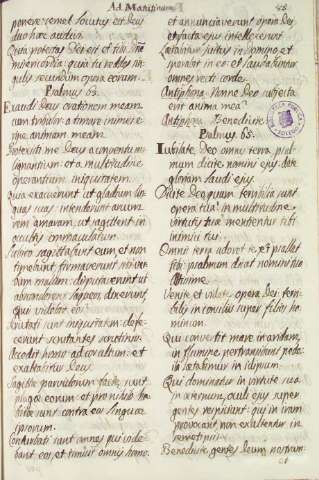 Ad Matutinum
ponere semel locutus est Deus
duo haec audivi
Quia potestas Dei est et tibi Dñe
misericordia quia tu reddes sin-
gulis secundum opera eorum.
Psalmus 63.
Exaudi Deus orationem meam
cum tribulor a timore inimici e-
ripe animam meam.
Protexisti me Deus a conventu ma-
lignantium et a multitudine
operantium iniquitatem.
Quia exacuerunt ut gladium lin-
guas suas intenderunt arcum
rem amaram, ut sagittent in
occultis immaculatum.
Subito sagittabunt eum, et non
timebunt firmaverunt sibi ver-
bum malum: disputaverunt ut
absconderent laqueos dixerunt,
Quis videbit eos
Scrutati sunt iniquitatem defe-
cerunt scrutantes scrutinio.
Accedet homo ad cor altum: et
exaltabitur Deus
Sagittæ parvulorum factæ sunt
plagæ eorum: et pro nihilo ha-
bitæ sunt contra eos linguæ
ipsorum.
Conturbati sunt omnes qui vide-
bant eos, et timuit omnis homo.
et annunciaverunt opera Dei
et facta ejus intellexerunt
Lætabitur justus in Domino et
sperabit in eo: et laudabuntur
omnes recti corde
Antiphona Nonne Deo subjecta
erit anima mea
Antiphona Benedicite
Psalmus 65.
Iubilate Deo omnis terra psal-
mum dicite nomini ejus date
gloriam laudi ejus.
Dicite Deo quam terribilia sunt
opera tua in multitudine
virtutis tuæ mentientur tibi
inimici tui
Omnis terra adoret te, et psallat
tibi: psalmum dicat nomini tuo
Altissime
Venite et videte opera Dei terri-
bilis in consiliis super filios ho-
minum.
Qui convertit mare in aridam,
in flumine pertransibunt pede:
ibi lætabimur in idipsum.
Qui dominatur in virtute sua
in æternum, oculi ejus super
gentes respiciunt: qui in iram
provocant non exaltentur in
semetipsis
Benedicite gentes Deum nostrum: